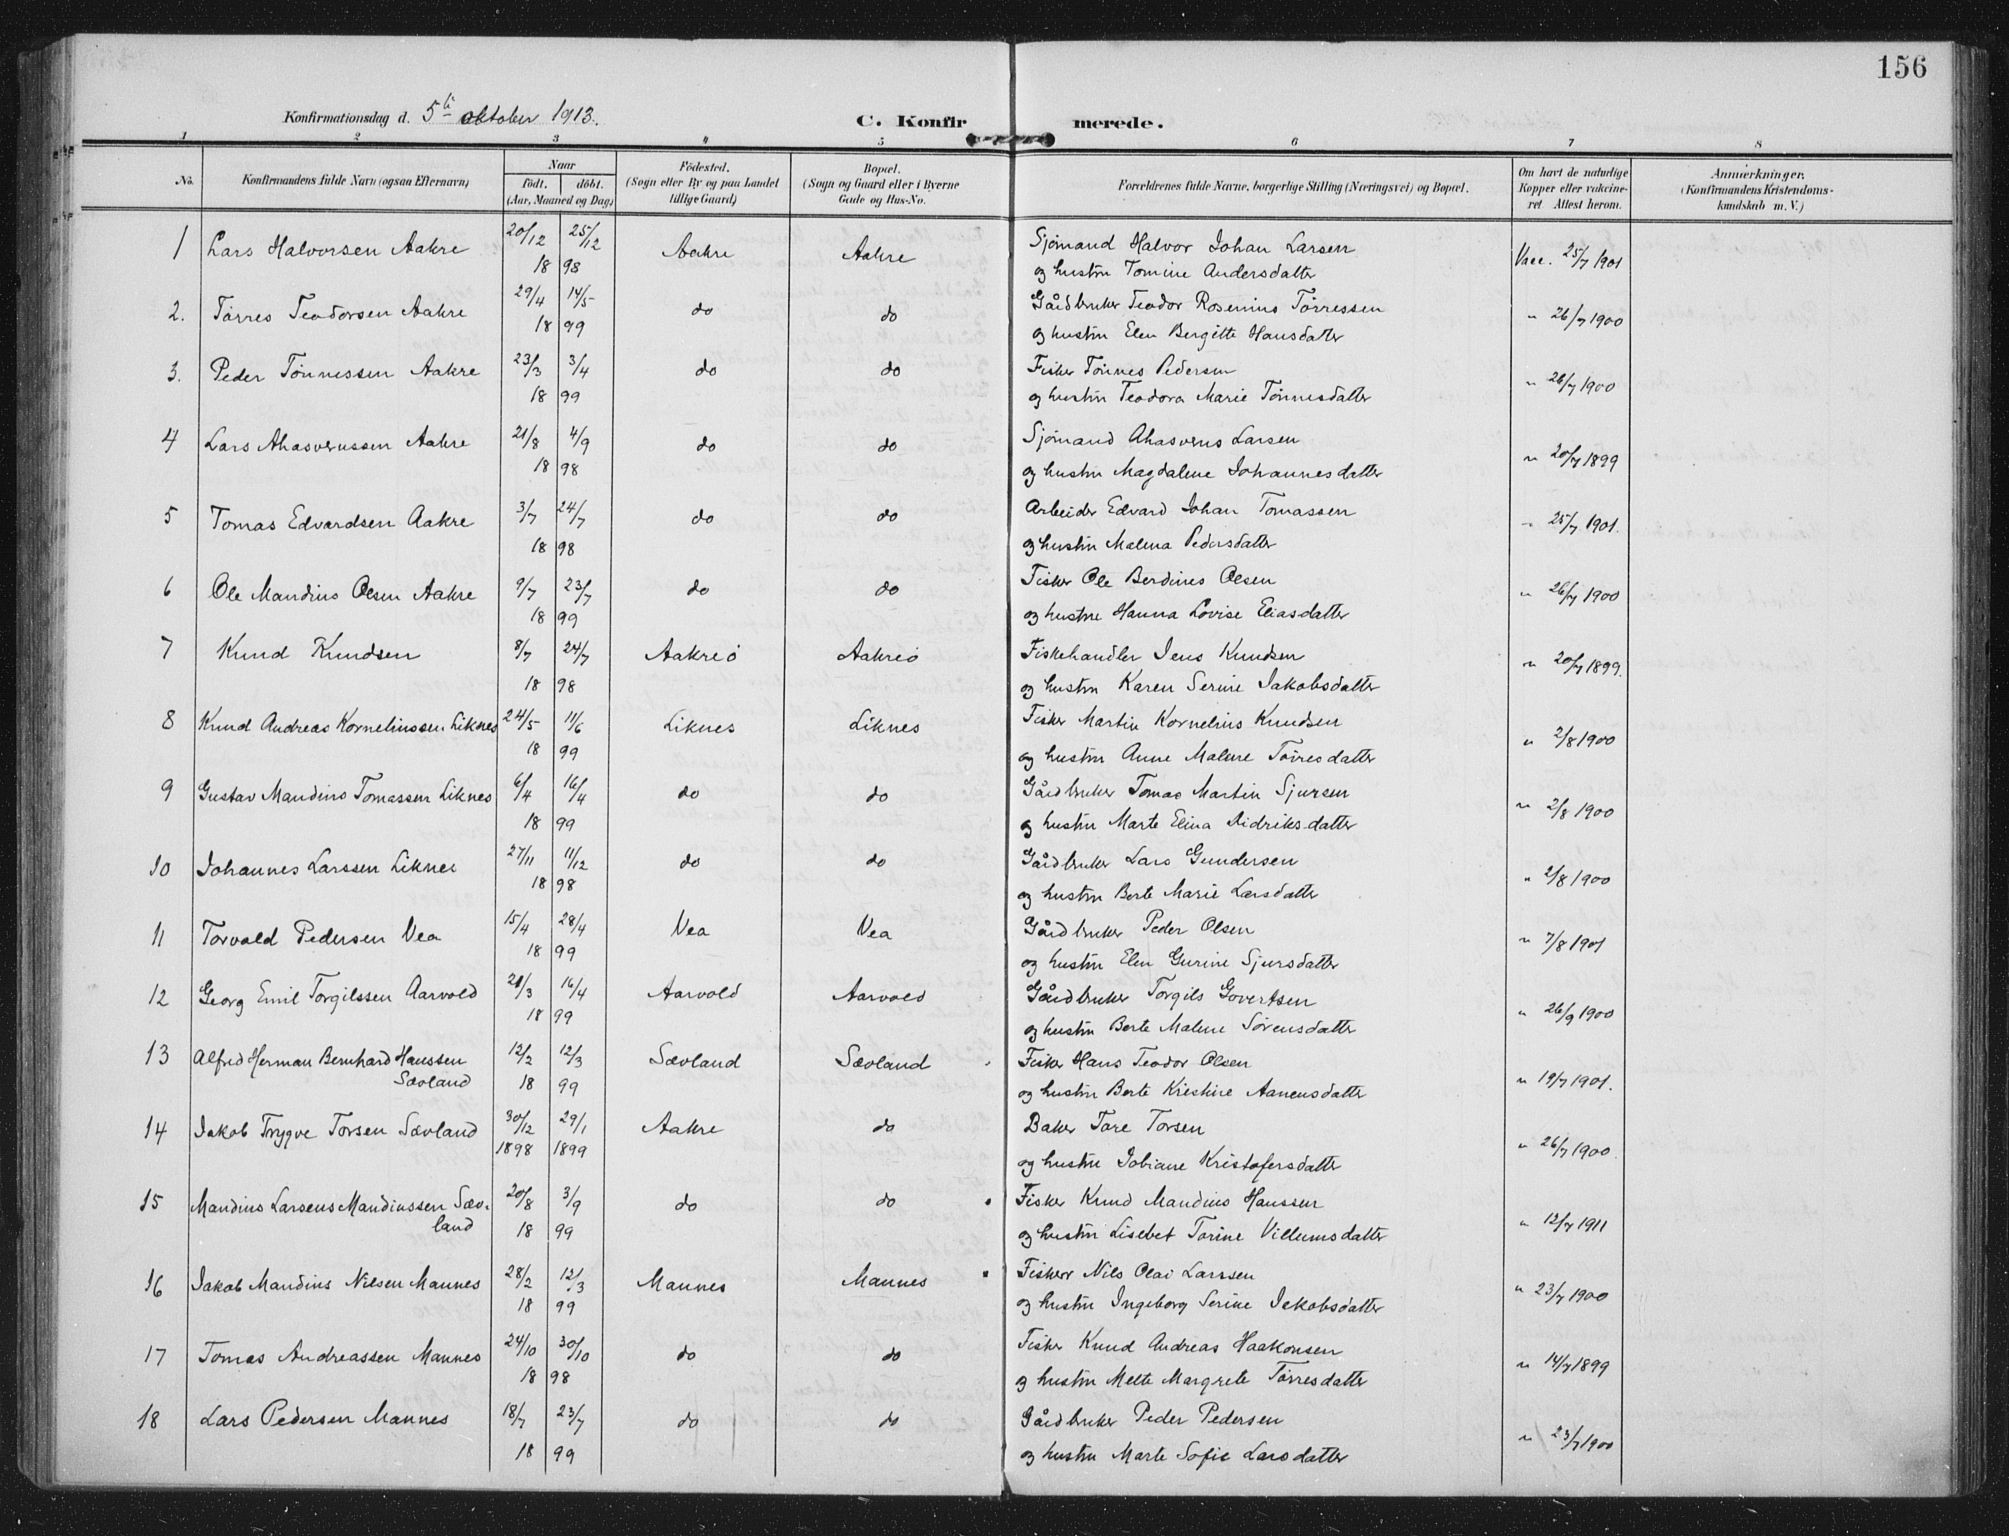 156
Konfirmationsdag d. 5ti oktober 1913. C. Konfirmerede.
1 2 3 4 5 6 7 8
No. Konfirmandens fulde Navn (ogsaa Efternavn) Naar födt. döbt. (Aar, Maaned og Dag) Födested. (Sogn eller By og paa Landet tillige Gaard) Bopæl. (Sogn og Gaard eller i Byerne Gade og Hus-No. Forældrenes fulde Navne, borgerlige Stilling (Næringsvei) og Bopæl. Om havt de naturlige Kopper eller vakcineret Attest herom. Anmærkninger. (Konfirmandens Kristendomskundskab m. V.)
1 Lars Halvorsen Aakre 20/12 25/12 Aakre Aakre Sjømand Halvor Johan Larsen Vacc. 25/7 1901
18 98 og hustru Tomine Andersdatter
2. Tørres Teodorsen Aakre 29/4 14/5 do do Gårdbruker Teodor Rosenius Tørressen " 26/7 1900
18 99 og hustru Elen Bergitte Hansdatter
3. Peder Tønnessen Aakre 23/3 3/4 do do Fisker Tønnes Pedersen " 26/7 1900
18 99 og hustru Teodora Marie Tønnesdatter
4 Lars Ahasverussen Aakre 21/8 4/9 do do Sjømand Ahasverus Larsen " 20/7 1899
18 98 og hustru Magdalene Johannesdatter
5 Tomas Edvardsen Aakre 3/7 24/7 do do Arbeider Edvard Johan Tomassen " 25/7 1901.
18 98 og hustru Malena Pedersdatter
6 Ole Mandius Olsen Aakre 9/7 23/7 do do Fisker Ole Berdines Olsen " 26/7 1900
18 99 og hustru Hanna Lovise Eliasdatter
7 Knud Knudsen 8/7 24/7 Aakreö Aakreö Fiskehandler Jens Knudsen " 20/7 1899.
18 98 og hustru Karen Serine Jakobsdatter
8 Knud Andreas Korneliussen Liknes 24/5 11/6 Liknes Liknes Fisker Martin Kornelius Knudsen " 2/8 1900
18 99 og hustru Anne Malene Tørresdatter
9 Gustav Mandius Tomassen Liknes 6/4 16/4 do do Gårdbruker Tomas Martin Sjursen " 2/8 1900
18 99 og hustru Marte Elina Didriksdatter
10 Johannes Larssen Liknes 27/11 11/12 do do Gårdbruker Lars Gundersen " 2/8 1900
18 98 og hustru Berte Marie Larsdatter
11 Torvald Pedersen Vea 15/4 28/4 Vea Vea Gårdbruker Peder Olsen " 7/8 1901
18 99 og hustru Elen Gurine Sjursdatter
12 Georg Emil Torgilssen Aarvold 21/3 16/4 Aarvold Aarvold Gårdbruker Torgils Govertsen " 26/9 1900
18 99 og hustru Berte Malene Sørensdatter
13 Alfred Herman Bernhard Hanssen 12/2 12/3 Sævland Sævland Fisker Hans Teodor Olsen
Sævland 18 99 og hustru Berte Kristine Aanensdatter " 19/7 1901.
14 Jakob Trygve Torsen Sævland 30/12 29/1 Aakre do Baker Tore Torsen
1898 1899 og hustru Jobiane Kristofersdatter " 26/7 1900
15 Mandius Larsens Mandiussen Sæv- 20/8 3/9 do do Fisker Knud Mandius Hanssen
land 18 99 og hustru Lisebet Torine Villumsdatter " 12/7 1911
16 Jakob Mandius Nilsen Mannes 28/2 12/3 Mannes Mannes Fisker Nils Olai Larssen " 23/7 1900
18 99 og hustru Ingeborg Serine Jakobsdatter
17 Tomas Andreassen Mannes 24/10 30/10 do do Fisker Knud Andreas Haakonsen " 14/7 1899
18 98 og hustru Mette Margrete Tørresdatter
18 Lars Pedersen Mannes 18/7 23/7 do do Gårdbruker Peder Pedersen " 23/7 1900
18 99 og hustru Marte Sofie Larsdatter